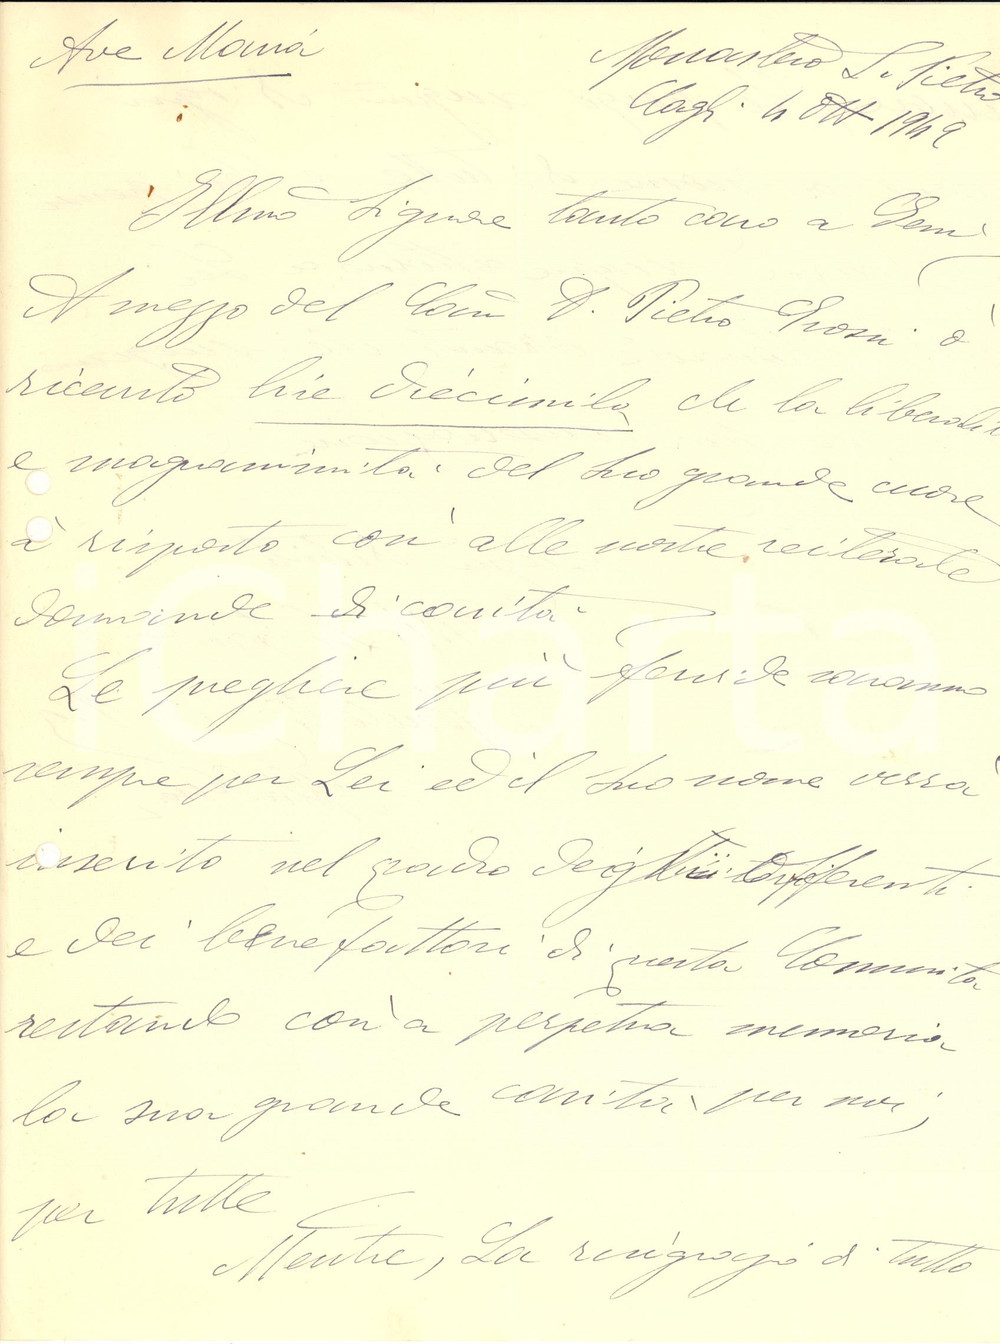 Ave Maria
Monastero S. Pietro
Cagli 4 Ott 1949
Ill.mo Signore tanto caro a Gesù
A mezzo del Can. D. Pietro ò
ricevuto lire diecimila che la liberalità
e magnanimità del Suo grande cuore
à risposto così alle nostre reiterate
domande di carità.
Le preghiere più fervide saranno
sempre per Lei ed il Suo nome verrà
inserito nel quadro degli Offerenti
e dei benefattori di questa Comunità
restando così a perpetua memoria
la sua grande carità per noi,
per tutte
Mentre, La ringrazio di tutto
iCharta